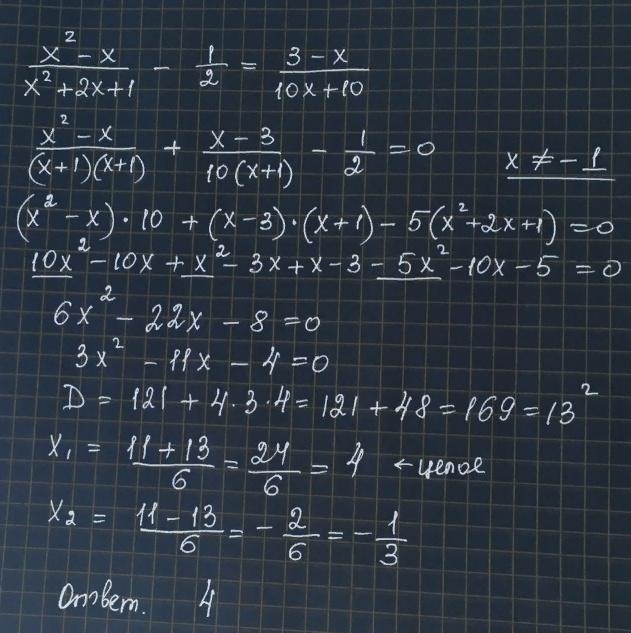 (x² - x)/(x² + 2x + 1) - 1/2 = (3 - x)/(10x + 10)
(x² - x)/((x+1)(x+1)) + (x - 3)/(10(x+1)) - 1/2 = 0    x ≠ -1
(x² - x)·10 + (x-3)·(x+1) - 5(x²+2x+1) = 0
10x² - 10x + x² - 3x + x - 3 - 5x² - 10x - 5 = 0
6x² - 22x - 8 = 0
3x² - 11x - 4 = 0
D = 121 + 4·3·4 = 121 + 48 = 169 = 13²
x₁ = (11 + 13)/6 = 24/6 = 4 ← целое
x₂ = (11 - 13)/6 = -2/6 = -1/3
Ответ. 4